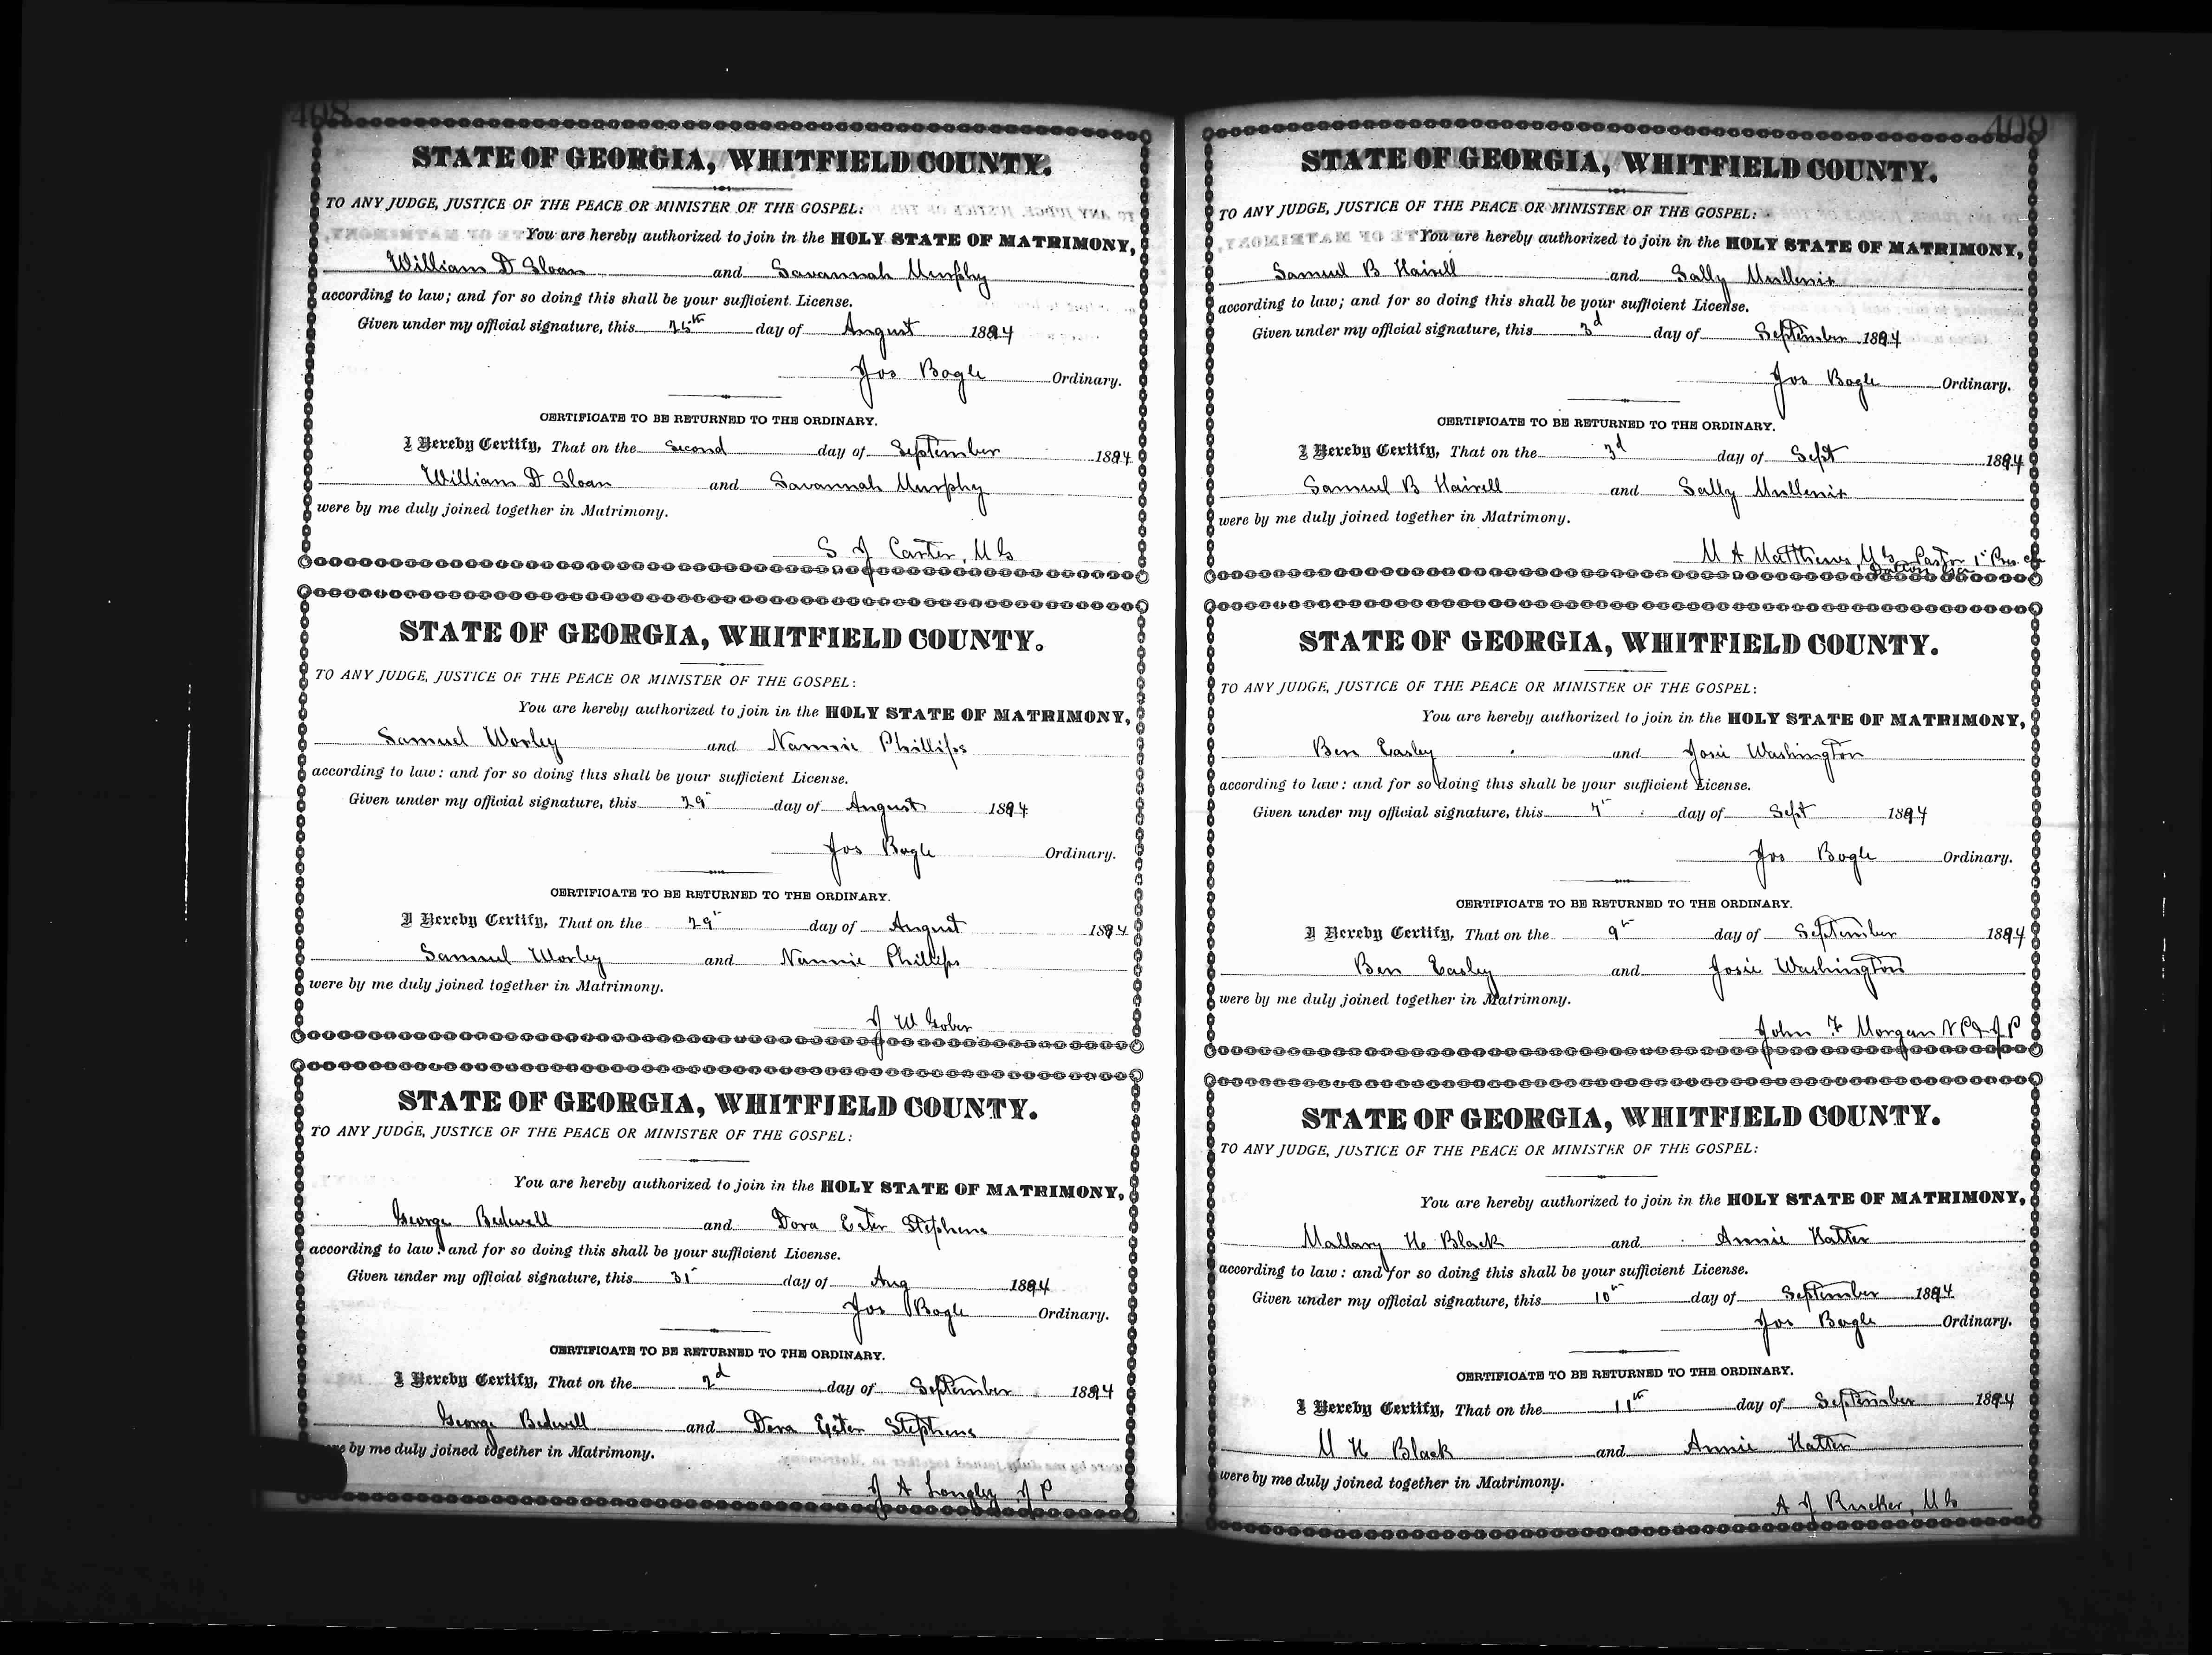 408
STATE OF GEORGIA, WHITFIELD COUNTY.
TO ANY JUDGE, JUSTICE OF THE PEACE OR MINISTER OF THE GOSPEL:
You are hereby authorized to join in the HOLY STATE OF MATRIMONY,
William D Sloan and Savannah Murphy
according to law; and for so doing this shall be your sufficient License.
Given under my official signature, this 25th day of August 1894
Jos Bogle Ordinary.
CERTIFICATE TO BE RETURNED TO THE ORDINARY.
I Hereby Certify, That on the Second day of September 1894
William D Sloan and Savannah Murphy
were by me duly joined together in Matrimony.
S J Carter, M G
STATE OF GEORGIA, WHITFIELD COUNTY.
TO ANY JUDGE, JUSTICE OF THE PEACE OR MINISTER OF THE GOSPEL:
You are hereby authorized to join in the HOLY STATE OF MATRIMONY,
Samuel Worley and Nannie Phillips
according to law: and for so doing this shall be your sufficient License.
Given under my official signature, this 29" day of August 1894
Jos Bogle Ordinary.
CERTIFICATE TO BE RETURNED TO THE ORDINARY.
I Hereby Certify, That on the 29" day of August 1894
Samuel Worley and Nannie Phillips
were by me duly joined together in Matrimony.
J W Gober
STATE OF GEORGIA, WHITFIELD COUNTY.
TO ANY JUDGE, JUSTICE OF THE PEACE OR MINISTER OF THE GOSPEL:
You are hereby authorized to join in the HOLY STATE OF MATRIMONY,
George Bedwell and Dora Ester Stephens
according to law: and for so doing this shall be your sufficient License.
Given under my official signature, this 31" day of Aug 1894
Jos Bogle Ordinary.
CERTIFICATE TO BE RETURNED TO THE ORDINARY.
I Hereby Certify, That on the 2d day of September 1894
George Bedwell and Dora Ester Stephens
were by me duly joined together in Matrimony.
J A Longley J P
409
STATE OF GEORGIA, WHITFIELD COUNTY.
TO ANY JUDGE, JUSTICE OF THE PEACE OR MINISTER OF THE GOSPEL:
You are hereby authorized to join in the HOLY STATE OF MATRIMONY,
Samuel B Hairell and Sally Mullenix
according to law; and for so doing this shall be your sufficient License.
Given under my official signature, this 3d day of September 1894
Jos Bogle Ordinary.
CERTIFICATE TO BE RETURNED TO THE ORDINARY.
I Hereby Certify, That on the 3d day of Sept 1894
Samuel B Hairell and Sally Mullenix
were by me duly joined together in Matrimony.
M A Matthews, M G Pastor 1" Pres. ch
Dalton Ga
STATE OF GEORGIA, WHITFIELD COUNTY.
TO ANY JUDGE, JUSTICE OF THE PEACE OR MINISTER OF THE GOSPEL:
You are hereby authorized to join in the HOLY STATE OF MATRIMONY,
Ben Easley and Josie Washington
according to law: and for so doing this shall be your sufficient License.
Given under my official signature, this 7" day of Sept 1894
Jos Bogle Ordinary.
CERTIFICATE TO BE RETURNED TO THE ORDINARY.
I Hereby Certify, That on the 9th day of September 1894
Ben Easley and Josie Washington
were by me duly joined together in Matrimony.
John F Morgan N P & J P
STATE OF GEORGIA, WHITFIELD COUNTY.
TO ANY JUDGE, JUSTICE OF THE PEACE OR MINISTER OF THE GOSPEL:
You are hereby authorized to join in the HOLY STATE OF MATRIMONY,
Mallary H Black and Annie Hatter
according to law: and for so doing this shall be your sufficient License.
Given under my official signature, this 10th day of September 1894
Jos Bogle Ordinary.
CERTIFICATE TO BE RETURNED TO THE ORDINARY.
I Hereby Certify, That on the 11th day of September 1894
M H Black and Annie Hatter
were by me duly joined together in Matrimony.
A J Rucker, M G